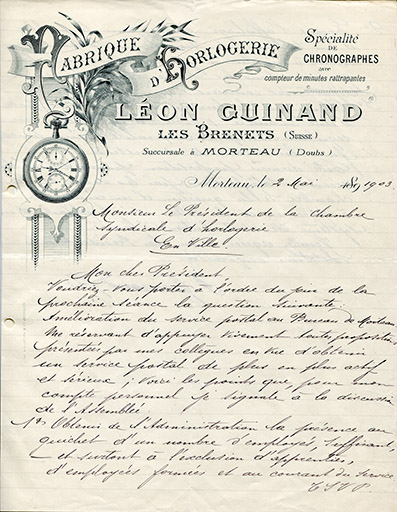 FABRIQUE
D'HORLOGERIE
Spécialité
DE
CHRONOGRAPHES
avec
compteur de minutes rattrapantes
LÉON GUINAND
LES BRENETS (SUISSE)
Succursale à MORTEAU (Doubs)
Morteau, le 2 Mai 1903.
Monsieur Le Président de la Chambre
Syndicale d'horlogerie
En Ville
Mon cher Président
Voudriez-vous porter à l'ordre du jour de la
prochaine séance la question suivante:
Amélioration du service postal au Bureau de Morteau
Me réservant d'appuyer vivement toutes propositions
présentées par mes collègues en vue d'obtenir
un service postal de plus en plus actif
et sérieux; voici les points que, pour mon
compte personnel je signale à la discussion
de l'Assemblée:
1° Obtenir de l'Administration la présence au
guichet d'un nombre d'employés, suffisant,
et surtout à l'exclusion d'apprenties,
d'employées formées et au courant du service
T.S.V.P.